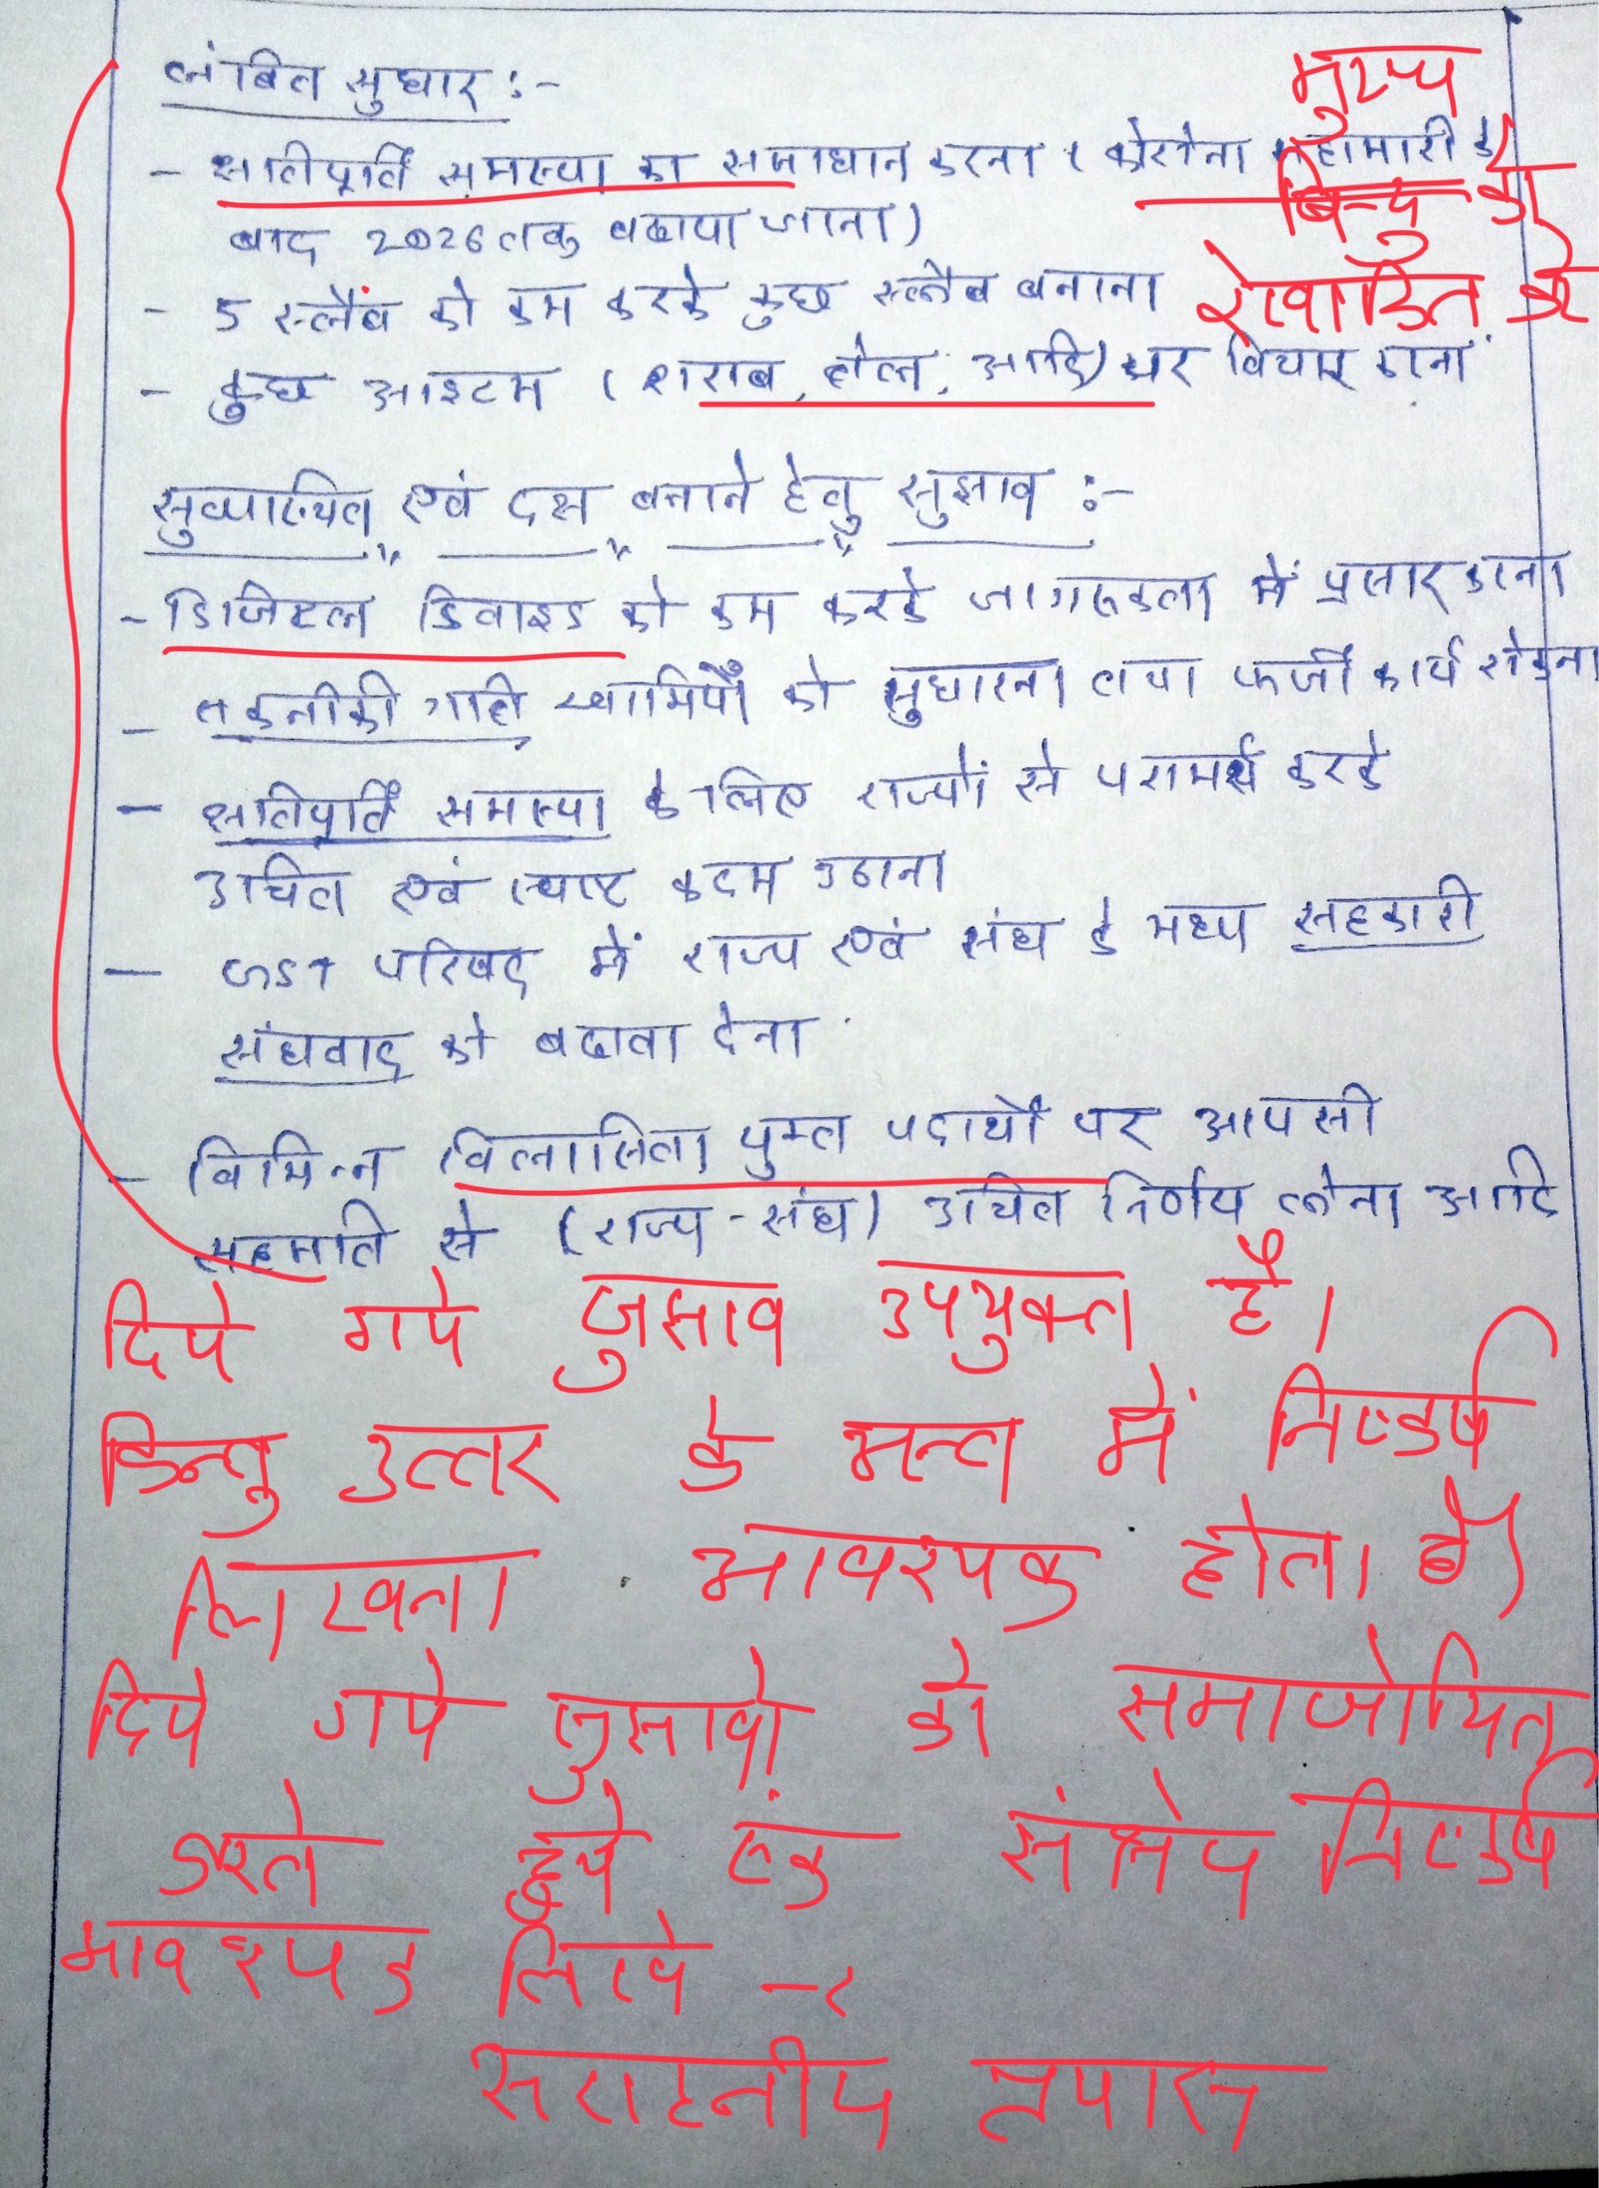 लंबित सुधार :-
मुख्य
- क्षतिपूर्ति समस्या का समाधान करना ( कोरोना महामारी के
बिन्दु को
बाद 2026 तक बढाया जाना )
- 5 स्लैब को कम करके कुछ स्लैब बनाना
रेखांकित करें
- कुछ आइटम ( शराब, तेल, आदि) पर विचार करना
सुव्यवस्थित एवं दक्ष बनाने हेतु सुझाव :-
- डिजिटल डिवाइड को कम करके जागरूकता में प्रसार करना
- तकनीकी गति खामियों को सुधारना तथा फर्जी कार्य रोकना
- क्षतिपूर्ति समस्या के लिए राज्यों से परामर्श करके
उचित एवं स्पष्ट कदम उठाना
- GST परिषद में राज्य एवं संघ के मध्य सहकारी
संघवाद को बढावा देना
- विभिन्न विलासिता युक्त पदार्थों पर आपसी
सहमति से (राज्य-संघ) उचित निर्णय लेना आदि
दिये गये सुझाव उपयुक्त है।
किन्तु उत्तर के अन्त में निष्कर्ष
लिखना आवश्यक होता है।
दिये गये सुझावों को समाजोयित
करते हुये एक संक्षेप निष्कर्ष
आवश्यक लिखे -
सराहनीय प्रयास